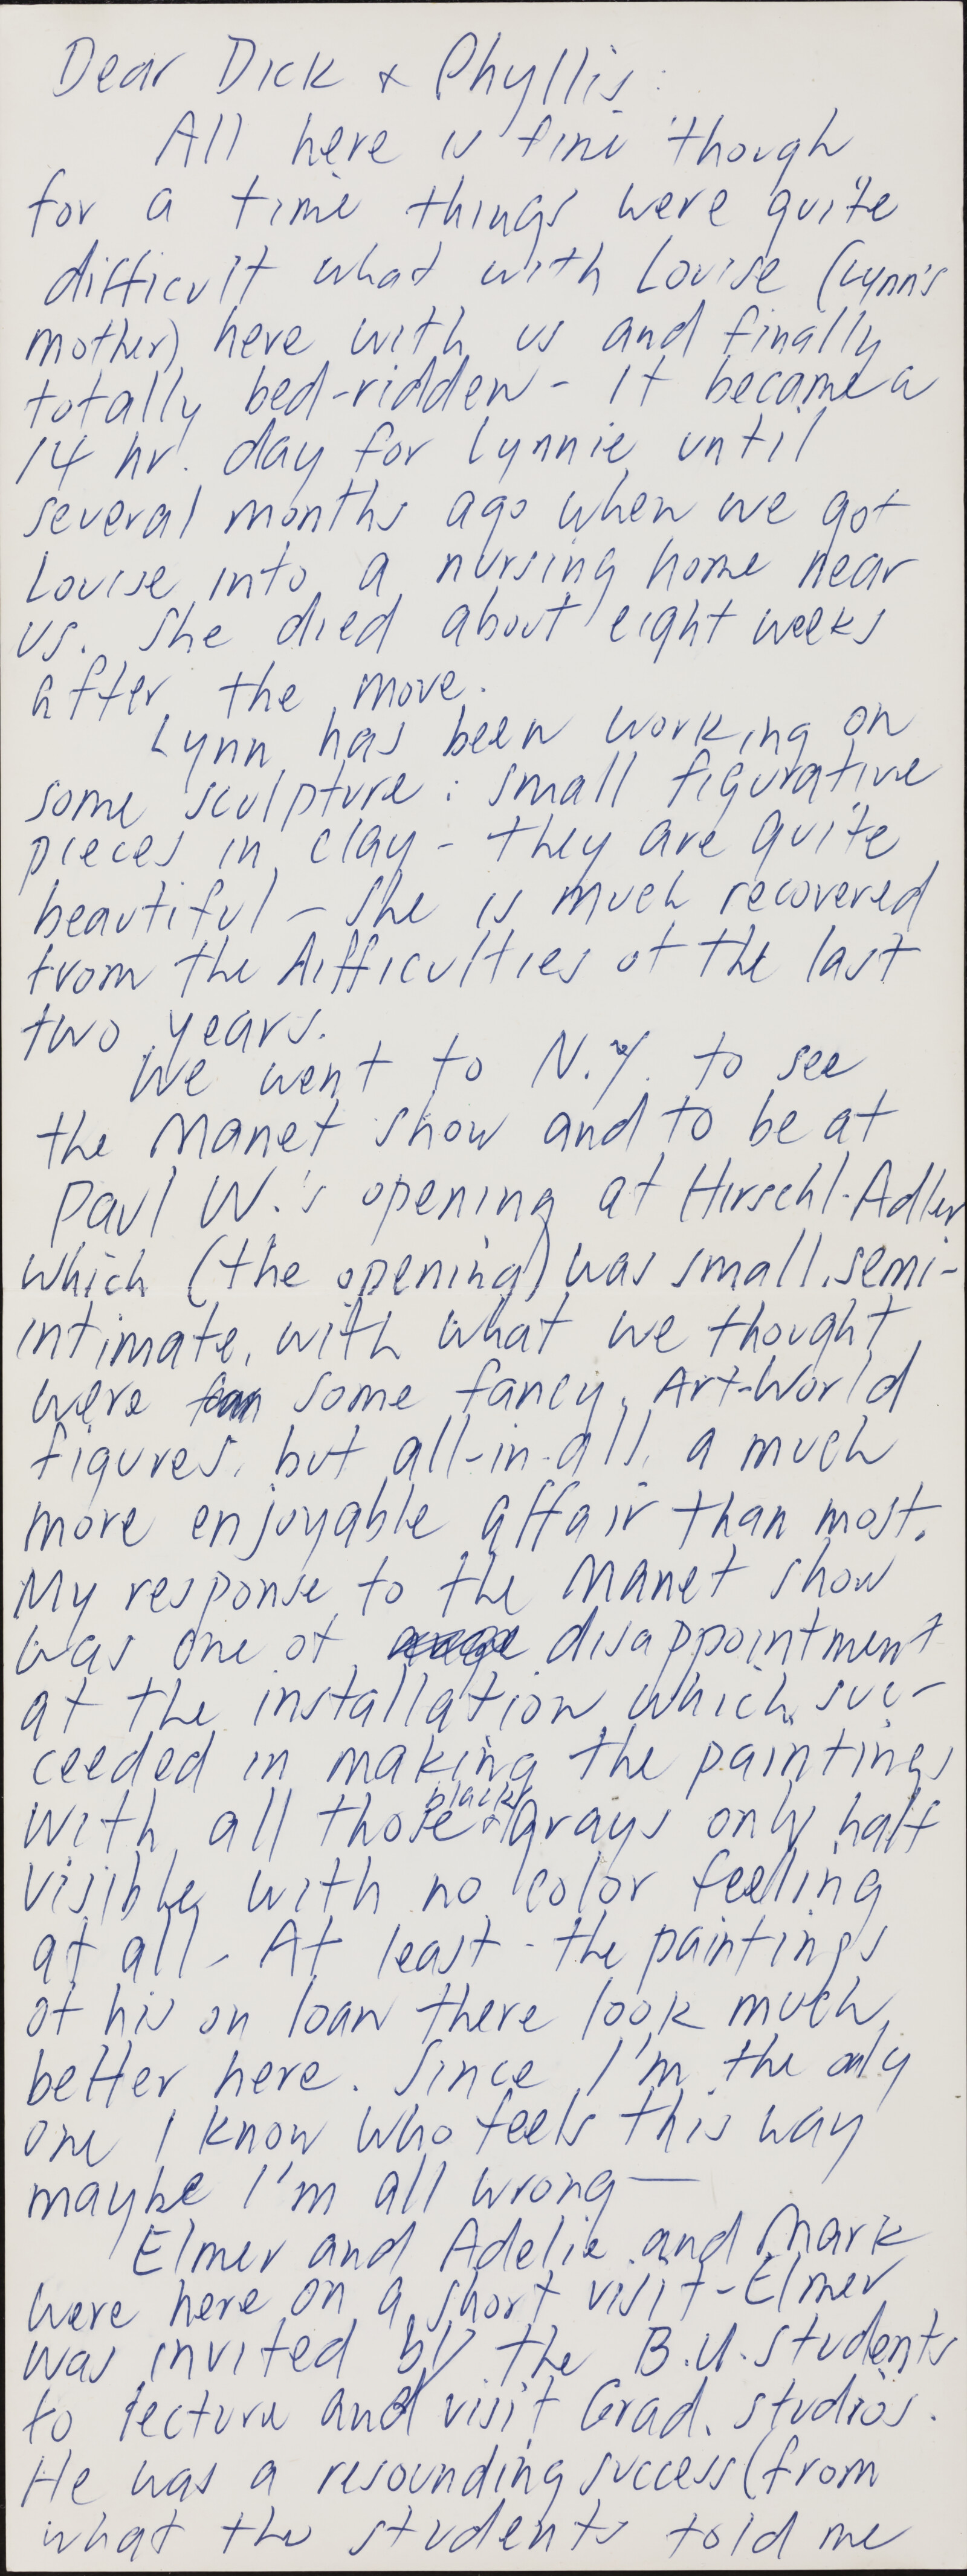 Dear Dick & Phyllis:
All here is fine though
for a time things were quite
difficult what with Louise (Lynn's
mother) here with us and finally
totally bed-ridden - It became a
14 hr. day for Lynnie until
several months ago when we got
Louise into a nursing home near
us. She died about eight weeks
after the move.
Lynn has been working on
some sculpture : small figurative
pieces in clay - they are quite
beautiful - She is much recovered
from the difficulties of the last
two years.
We went to N.Y. to see
the Manet show and to be at
Paul W.'s opening at Hirschl-Adler
which (the opening) was small, semi-
intimate, with what we thought
were some fancy, Art-World
figures, but all-in-all, a much
more enjoyable affair than most.
My response to the Manet show
was one of disappointment
at the installation which suc-
ceeded in making the paintings
with all those blacks & grays only half
visible with no color feeling
at all - At least - the paintings
of his on loan there look much
better here. Since I'm the only
one I know who feels this way
maybe I'm all wrong —
Elmer and Adelie and Mark
were here on a short visit - Elmer
was invited by the B.U. students
to lecture and visit Grad. studios.
He was a resounding success (from
what the students told me